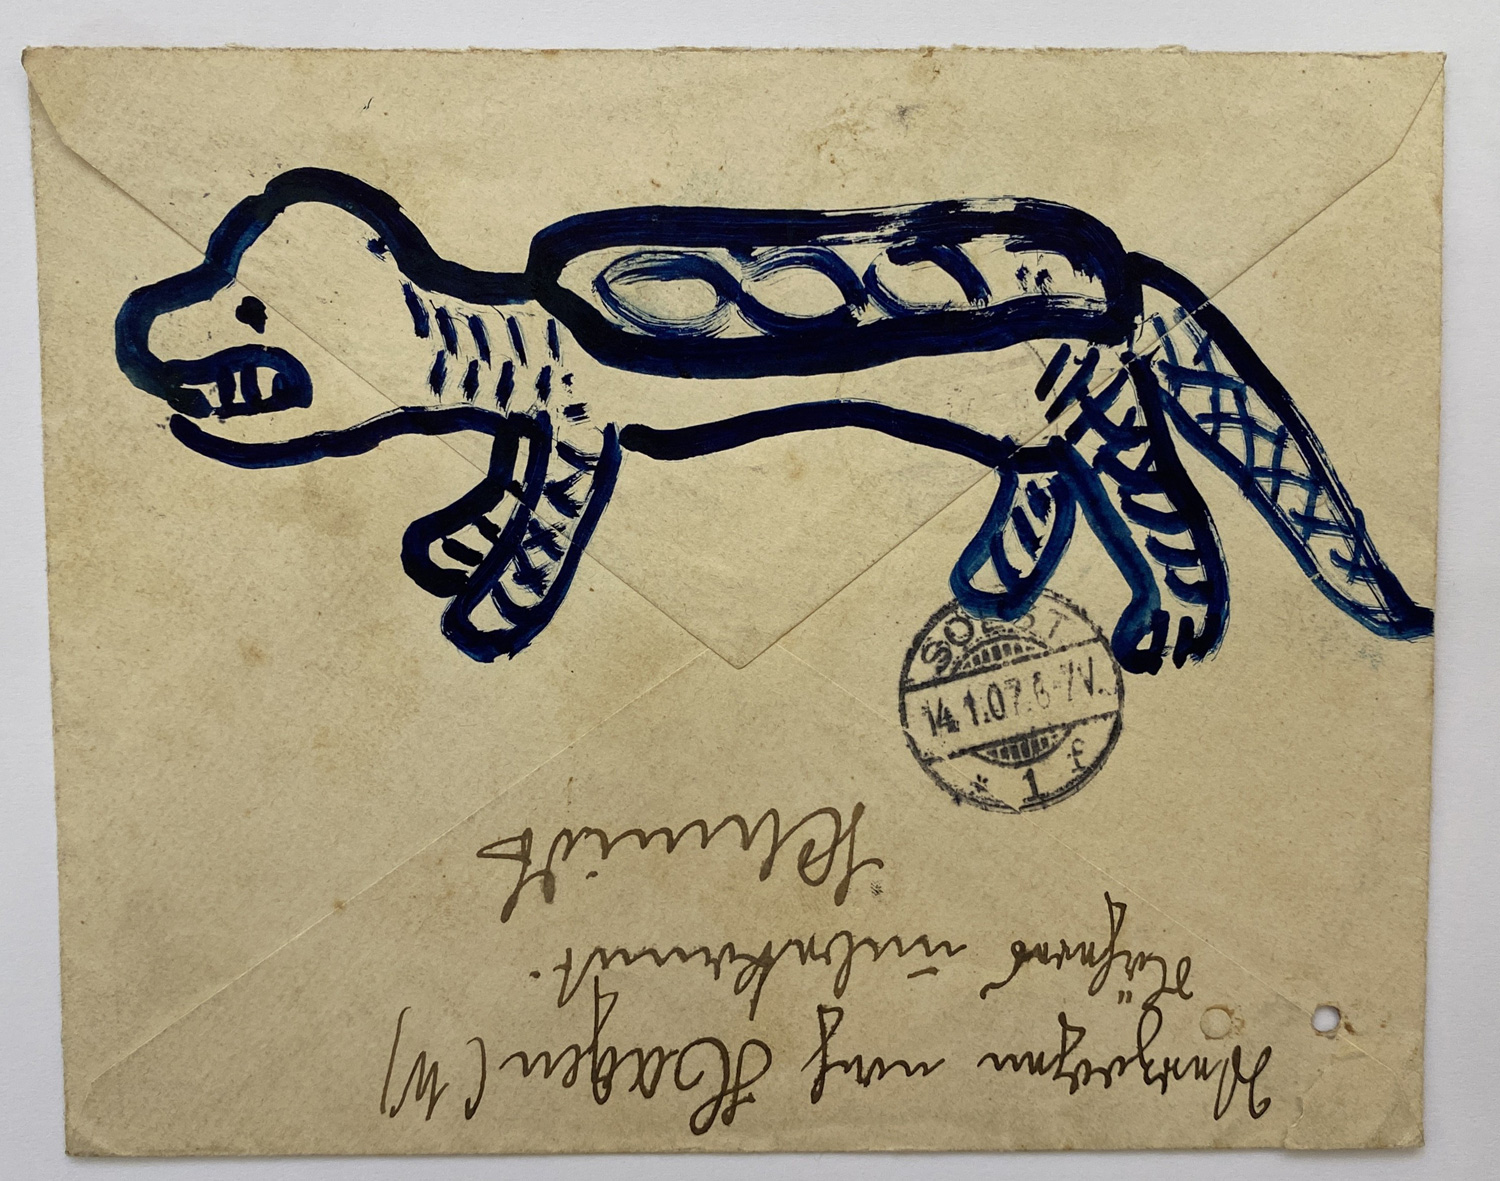 SOEST
14.1.07.6-7V.
* 1 f
Verzogen nach Hagen (W)
Näheres unbekannt.
Schmidt